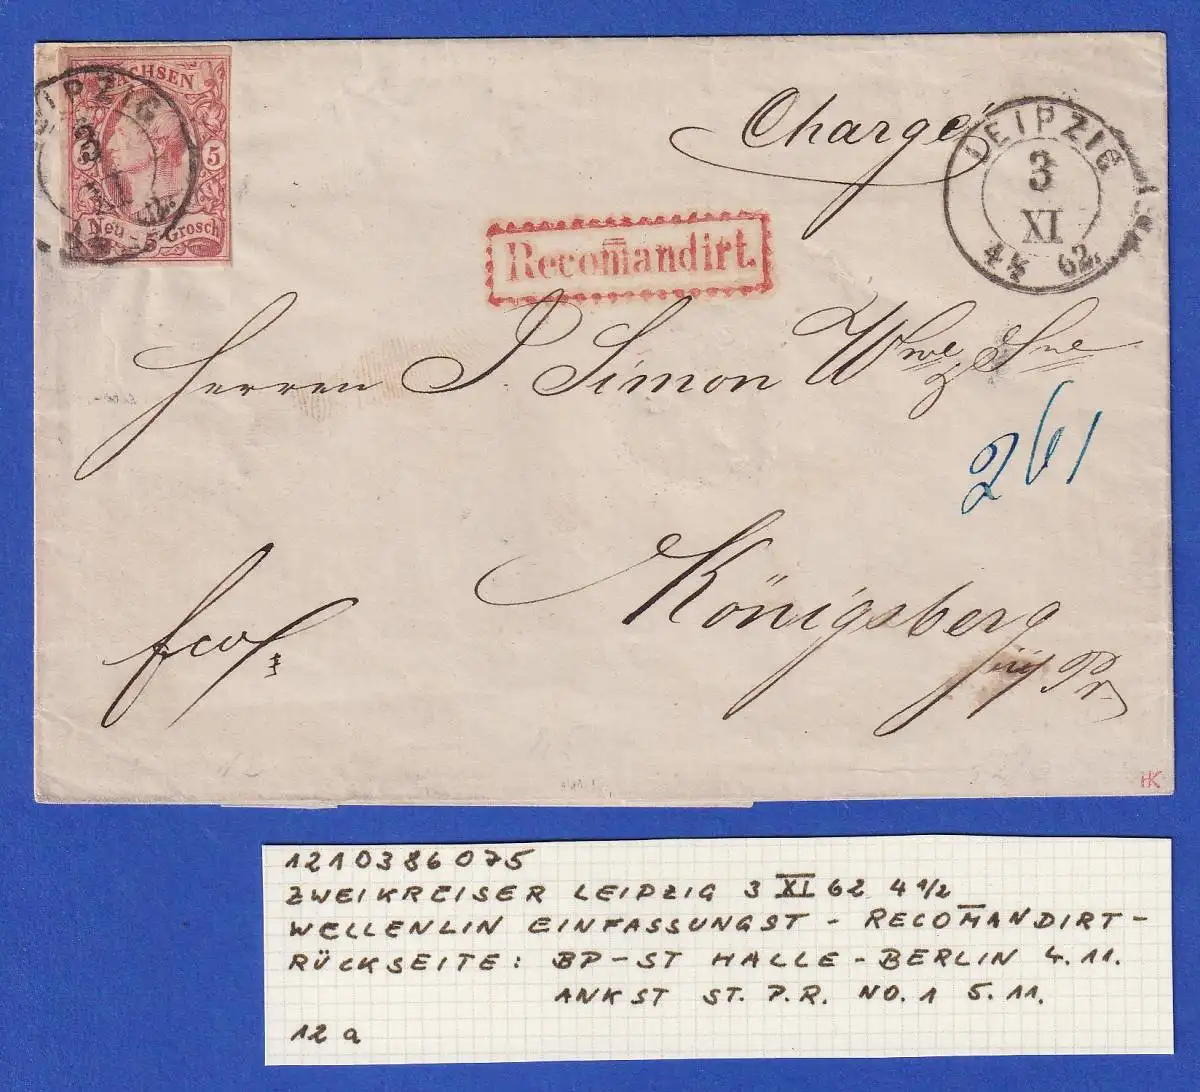 SACHSEN
5
Neu Grosch
5
LEIPZIG
3
Chargé
LEIPZIG
3
XI
4½ 62.
Recom̅andirt.
Herren J Simon Wwe & Sne
261
Königsberg
fco
i/ Pr
HK
1210386075
ZWEIKREISER LEIPZIG 3 XI 62 4 1/2
WELLENLIN EINFASSUNGST - RECOM̅ANDIRT-
RÜCKSEITE: BP-ST HALLE-BERLIN 4.11.
ANKST ST. P.R. NO.1 5.11.
12 a